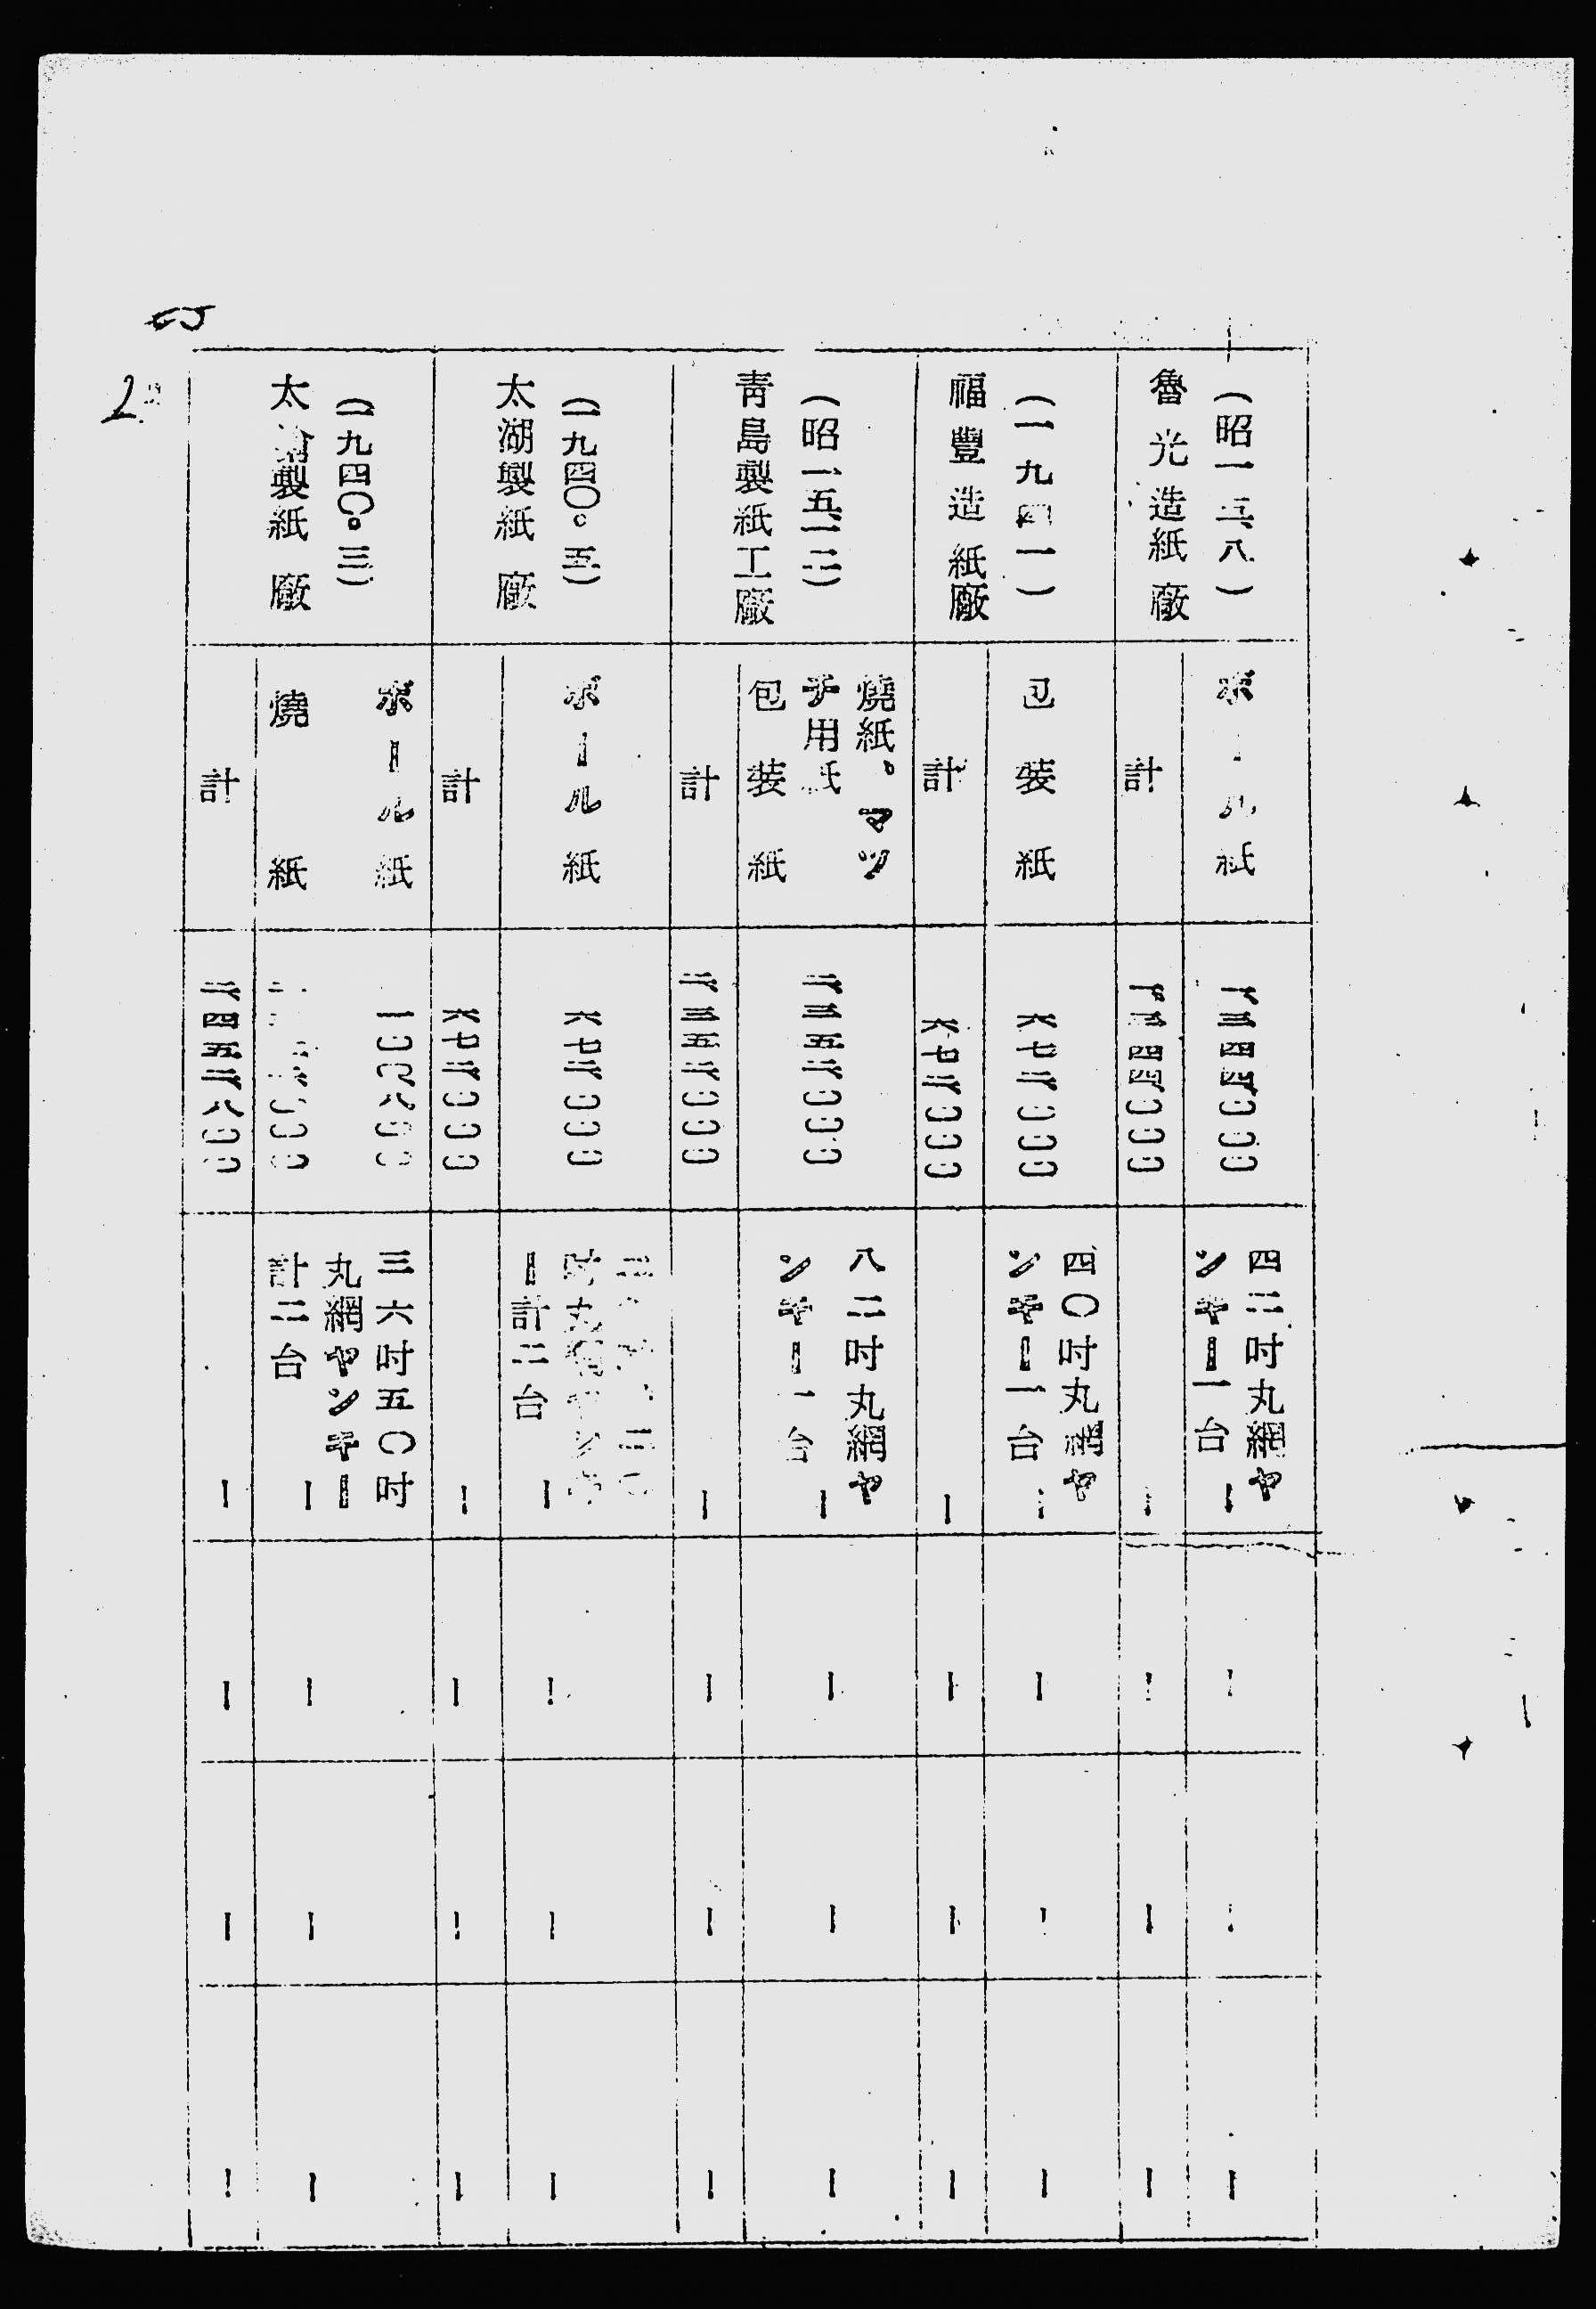 （昭一　八）
魯光造紙廠
ボール紙
一、三四四、〇〇〇
四二吋丸網ヤ
ンキー一台
ー
ー
ー
ー
計
一、三四四、〇〇〇
ー
ー
ー
ー
（一九四一）
福豊造紙廠
包装紙
六七二、〇〇〇
四〇吋丸網ヤ
ンキー一台
ー
ー
ー
ー
計
六七二、〇〇〇
ー
ー
ー
ー
（昭一五、一二）
青島製紙工廠
燒紙、マツ
チ用紙
包装紙
二、三五二、〇〇〇
八二吋丸網ヤ
ンキー一台
ー
ー
ー
ー
計
二、三五二、〇〇〇
ー
ー
ー
ー
（一九四〇。五）
太湖製紙廠
ボール紙
六七二、〇〇〇
吋丸網ヤンキ
ー計二台
ー
ー
ー
ー
計
六七二、〇〇〇
ー
ー
ー
ー
（一九四〇。三）
太　製紙廠
ボール紙
燒紙
三六吋五〇吋
丸網ヤンキー
計二台
ー
ー
ー
ー
計
二、四五二、八〇〇
ー
ー
ー
ー